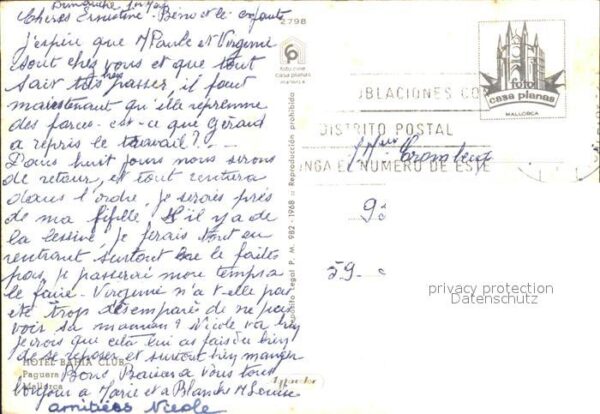 Dimanche
Cheres Ernestine. Béno et le enfants
J'espère que M Paule et Virginie
sont chez vous et que tout
soit très bien passer, il faut
maintenant qu'elle reprenne
des forces - est-ce que Gérard
a repris le travail? --
Dans huit jours nous serons
de retour, et tout rentrera
dans l'ordre, je serais près
de ma fifille S'il y a de
la lessive, je ferais tout en
rentrant surtout ne le faites
pas, je passerai mon temps a
le faire - Virginie n'a t-elle pas
été trop désemparée de ne pas
voir sa maman? Nicole va bien
je crois que cela lui as fais du bien
de se reposer et surtout bien manger
Bons Baisers a Vous tous
bonjour a Marie et a Blanche M Louise
amitiées Nicole
HOTEL BAHIA CLUB
Paguera
Mallorca
2798
foto cine
casa planas
mallorca
Depósito Legal P. M. 982 - 1968 - Reproducción prohibida
foto
casa planas
MALLORCA
POBLACIONES CON
DISTRITO POSTAL
PONGA EL NUMERO DE ESTE
59
privacy protection
Datenschutz